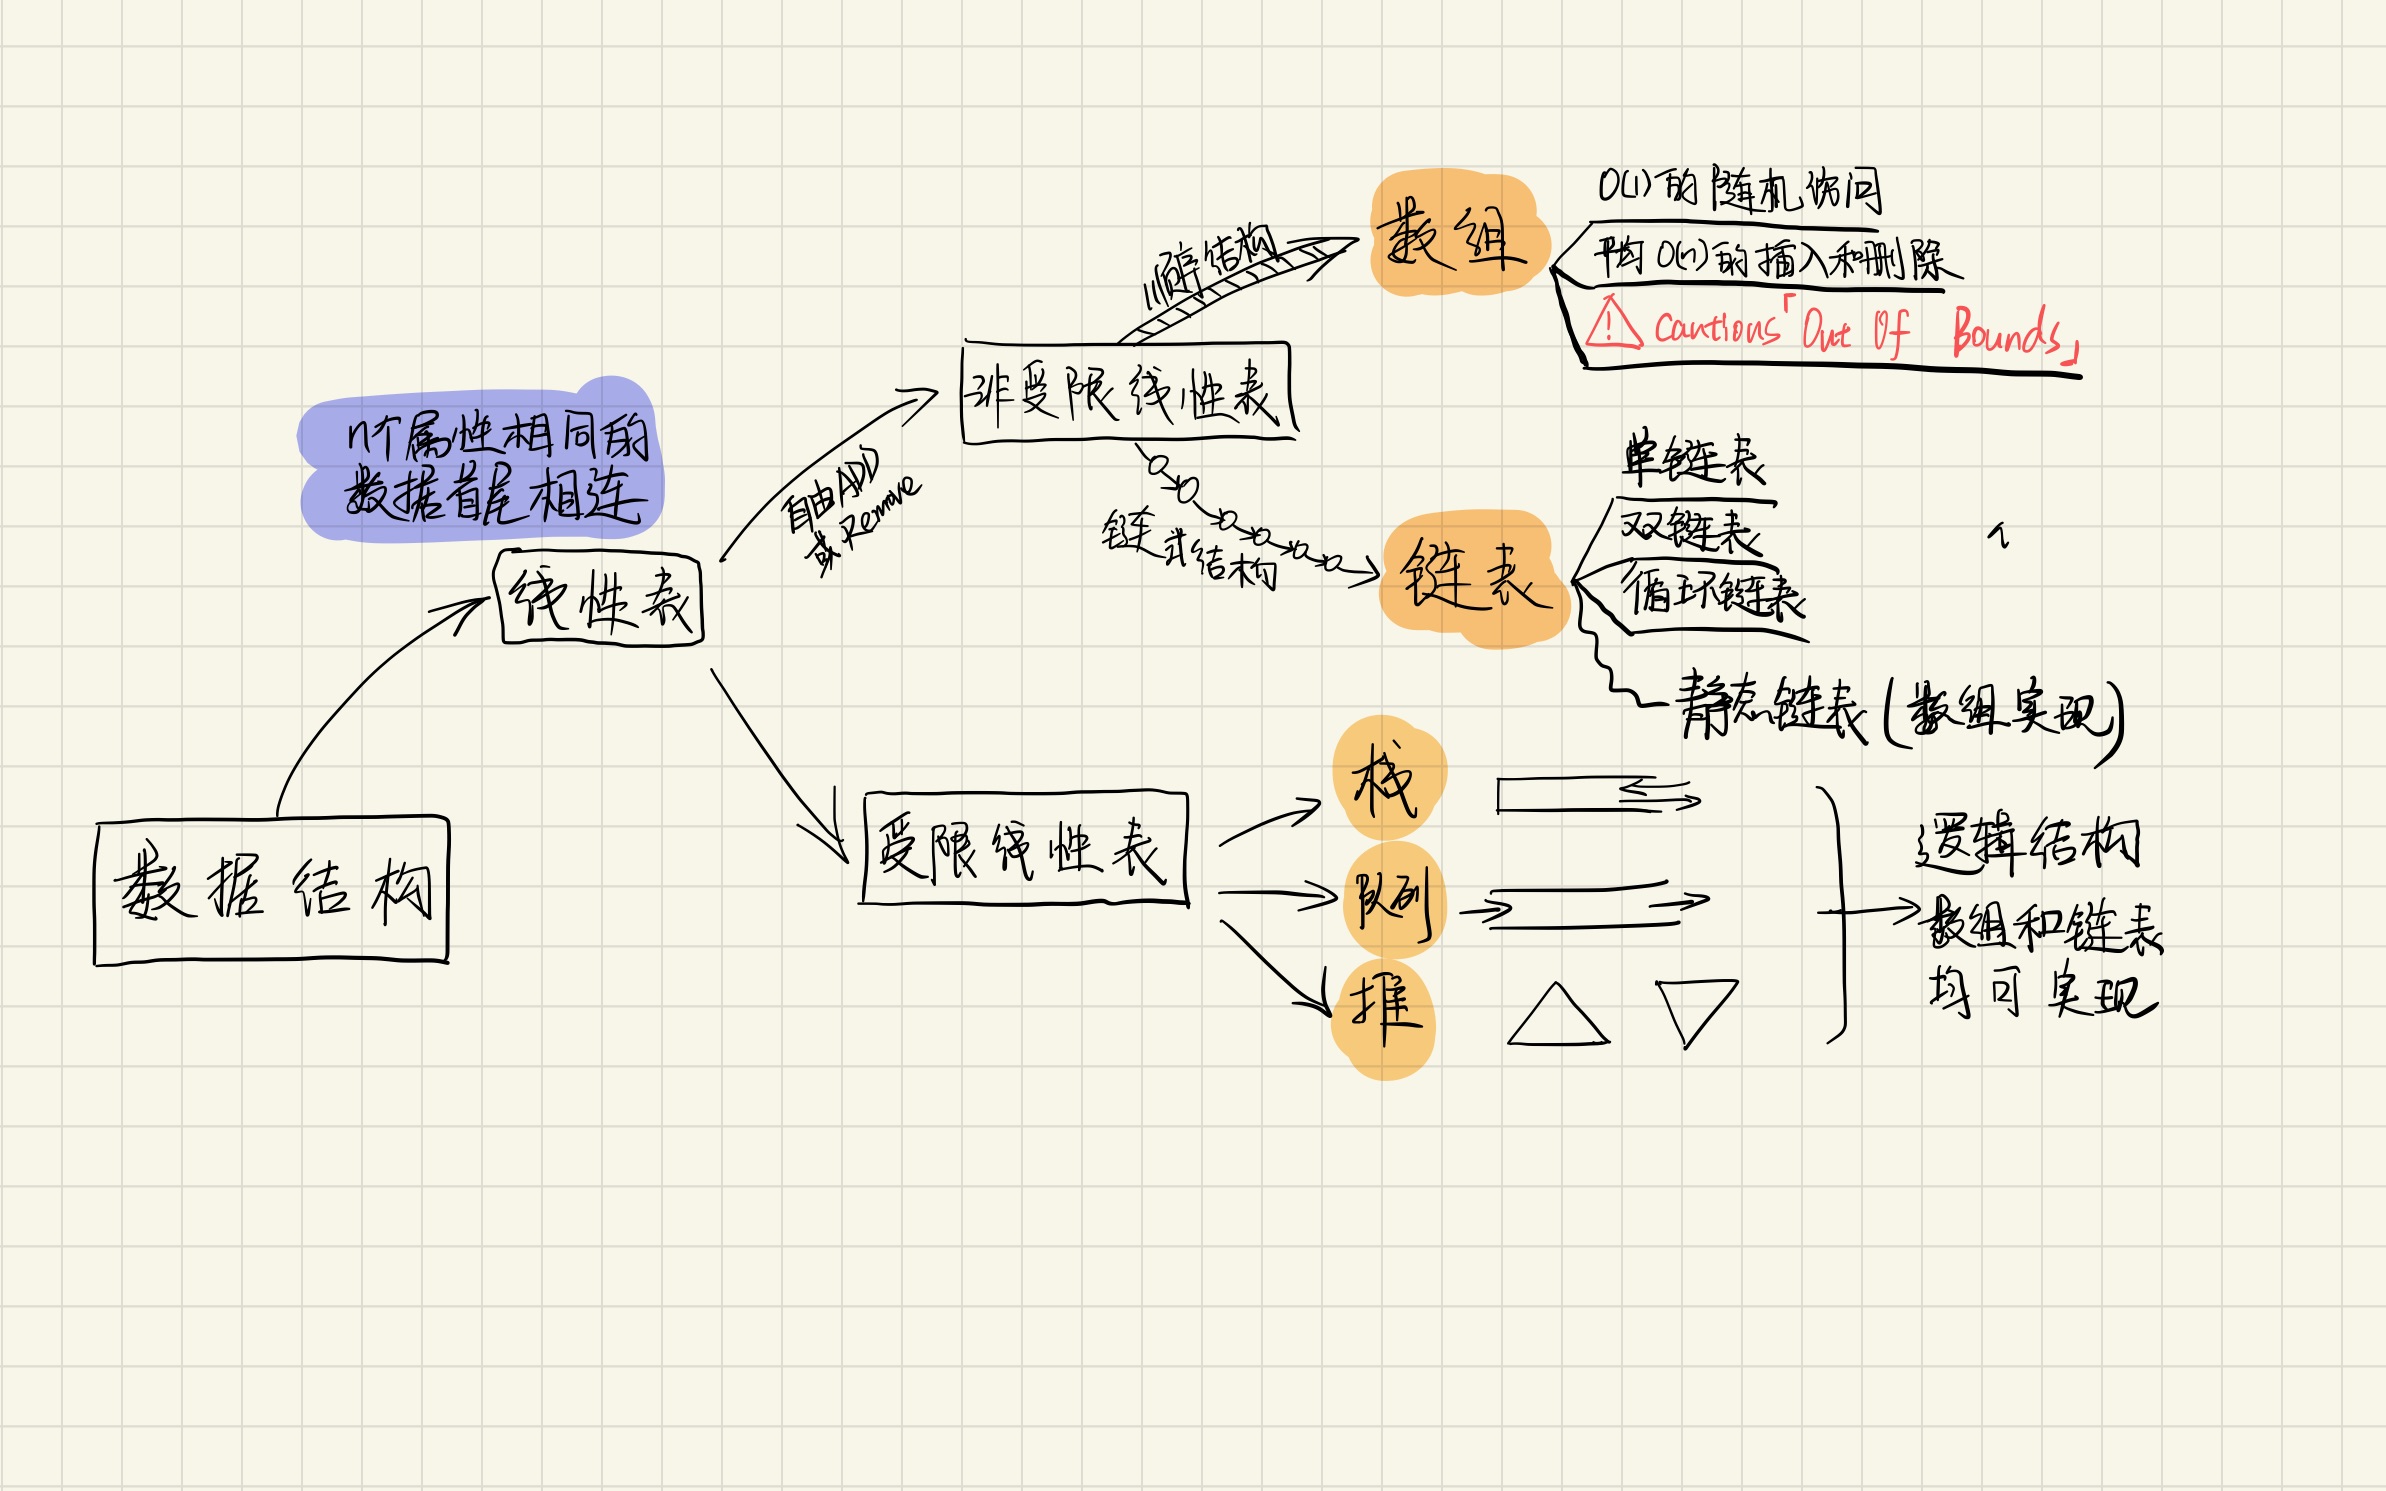 数据结构
n个属性相同的
数据首尾相连
线性表
自由ADD
或Remove
非受限线性表
顺序结构
数组
O(1)的随机访问
平均O(n)的插入和删除
! Cautions「Out Of Bounds」
链式结构
链表
单链表
双链表
循环链表
静态链表(数组实现)
受限线性表
栈
队列
推
逻辑结构
数组和链表
均可实现